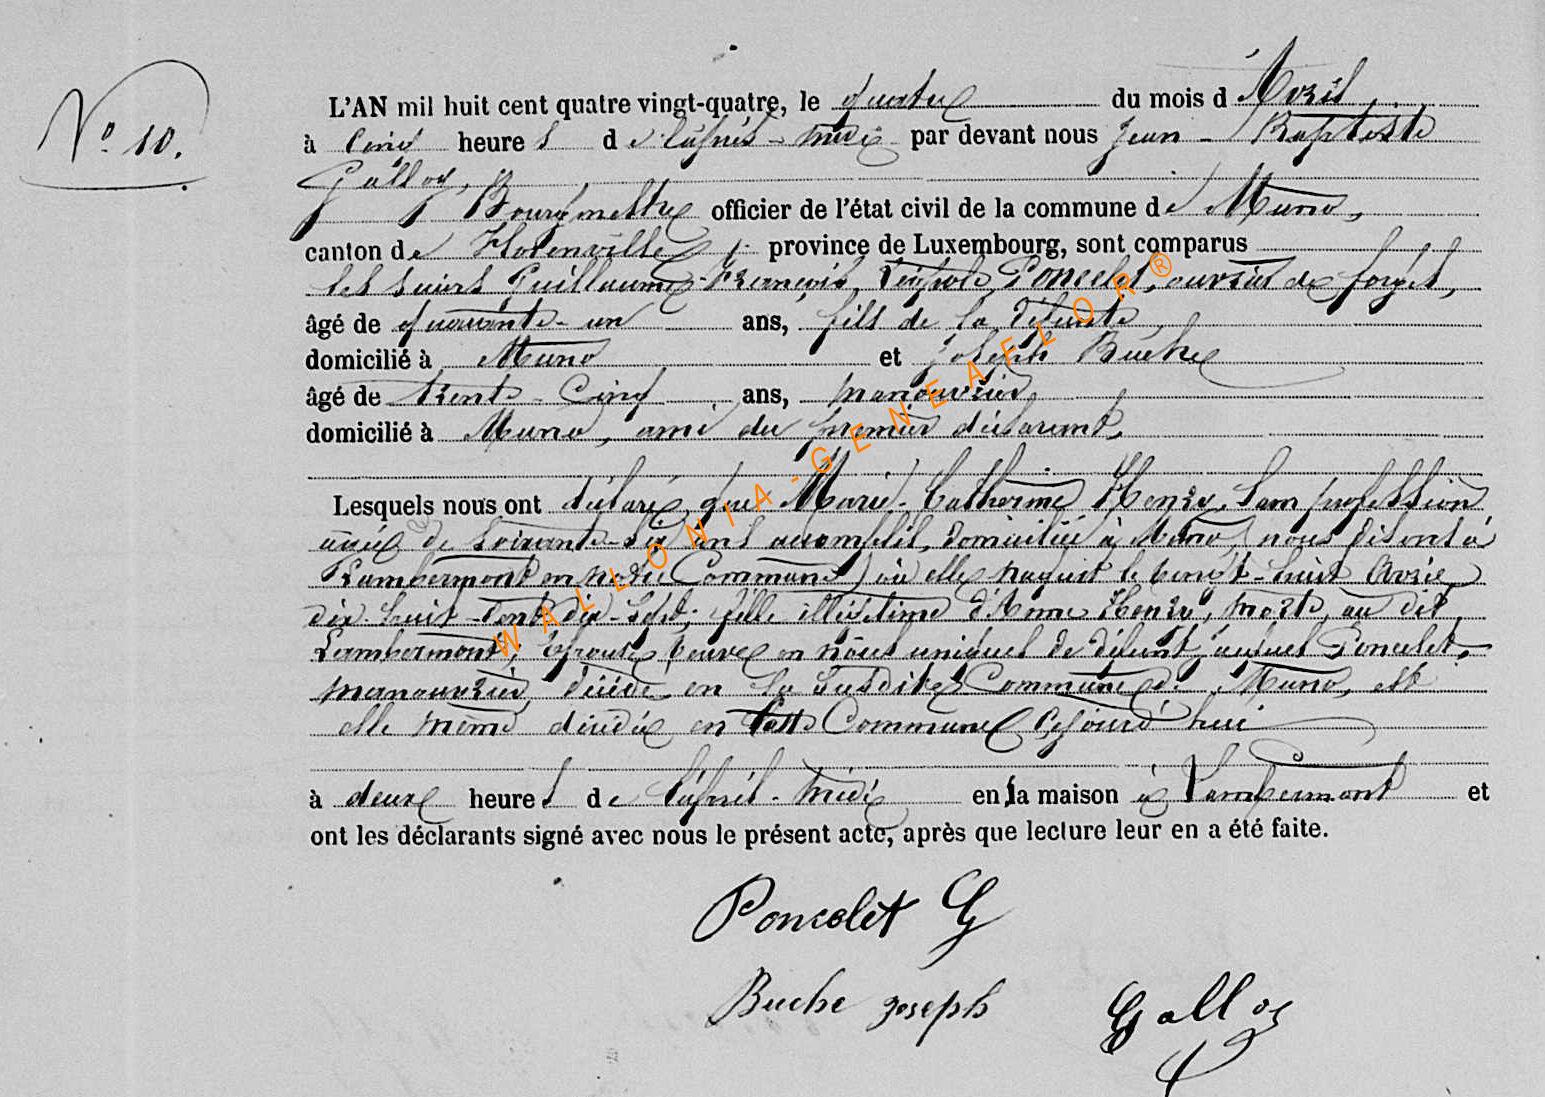 N° 10.
L'AN mil huit cent quatre vingt-quatre, le quatre du mois d'Avril,
à cinq heures de l'après-midi par devant nous Jean-Baptiste
Galloy,
Bourgmestre officier de l'état civil de la commune de Muno,
canton de Florenville, province de Luxembourg, sont comparus
les sieurs Guillaume-François, Léopold Poncelet, ouvrier de forges,
âgé de quarante-un ans, fils de la défunte,
domicilié à Muno et Joseph Buche
âgé de trente-cinq ans, manouvrier
domicilié à Muno, ami du premier déclarant,
Lesquels nous ont déclaré que Marie-Catherine Henry, sans profession
âgée de soixante-six ans accomplis, domiciliée à Muno,
Lambermont en notre Commune) où elle naquit le vingt-huit Avril
dix-huit-cent dix-sept; fille illégitime d'Anne Henry, morte, au dit
Lambermont; épouse, veuve en nôces uniques de défunt Poncelet,
manouvrier, décédé en la susdite Commune de Muno, est
elle même décédée en cette Commune cejourd'hui
à deux heures de l'après-midi en la maison à Lambermont et
ont les déclarants signé avec nous le présent acte, après que lecture leur en a été faite.
Poncelet G
Buche Joseph
Galloy
WALLONIA-GENEAFLOR®